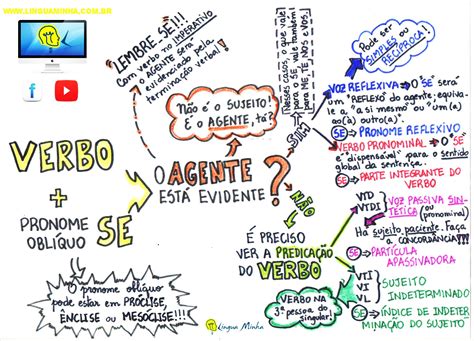 WWW.LINGUAMINHA.COM.BR
LEMBRE SE!!!
Com verbo no IMPERATIVO
o AGENTE será
evidenciado pela
terminação verbal!
Não é o SUJEITO!
É o AGENTE, tá?
Nesses casos, o que vale
para o SE vale também
para ME, TE, NOS e VOS.
Pode ser
SIMPLES ou
RECÍPROCA!
VOZ REFLEXIVA → O "SE" será
um "REFLEXO" do agente, equivale
a "a si mesmo" ou "um(a)
ao(à) outro(a)".
SE → PRONOME REFLEXIVO
VERBO PRONOMINAL → O "SE"
é "dispensável" para o sentido
global da sentença.
SE → PARTE INTEGRANTE DO
VERBO
SIM
VERBO
+
PRONOME
OBLÍQUO
SE
O AGENTE
ESTÁ EVIDENTE
?
NÃO
É PRECISO
VER A PREDICAÇÃO
DO VERBO
VTD
VTDI
VOZ PASSIVA SIN-
TÉTICA (ou pronominal)
Há sujeito paciente. Faça
a CONCORDÂNCIA!!!
SE → PARTÍCULA
APASSIVADORA
VTI
VI
VL
SUJEITO
INDETERMINADO
SE → ÍNDICE DE INDETER
MINAÇÃO DO SUJEITO
VERBO NA
3ª pessoa do
singular!
O pronome oblíquo
pode estar em PRÓCLISE,
ÊNCLISE ou MESÓCLISE!!!
Língua Minha